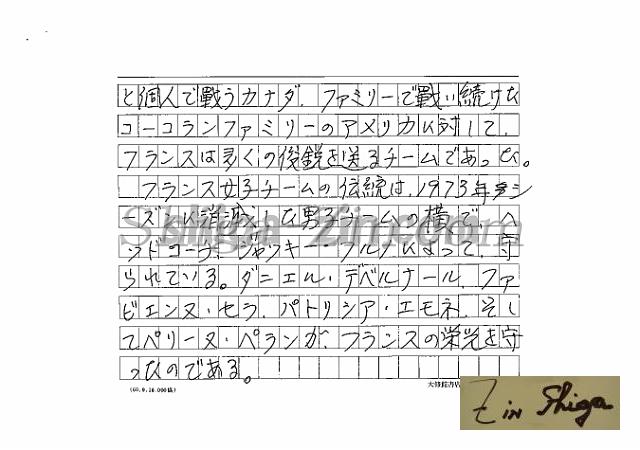 と個人で戦うカナダ、ファミリーで戦い続けた
コーコランファミリーのアメリカに対して、
フランスは多くの後鋭を送るチームであった。
フランス女子チームの伝統は、1973年シ
ーズンに消滅した男子チームの横で、ヘ
ッドコーチ、ジャッキー・フルノによって、守
られている。ダニエル・デベルナール、ファ
ビエンヌ・セラ、パトリシア・エモネ、そし
てペリーヌ・ペランが、フランスの栄光を守
ったのである。
(60.9.20.000福)
大修館書店
Shiga-Zin.com
Z in Shiga